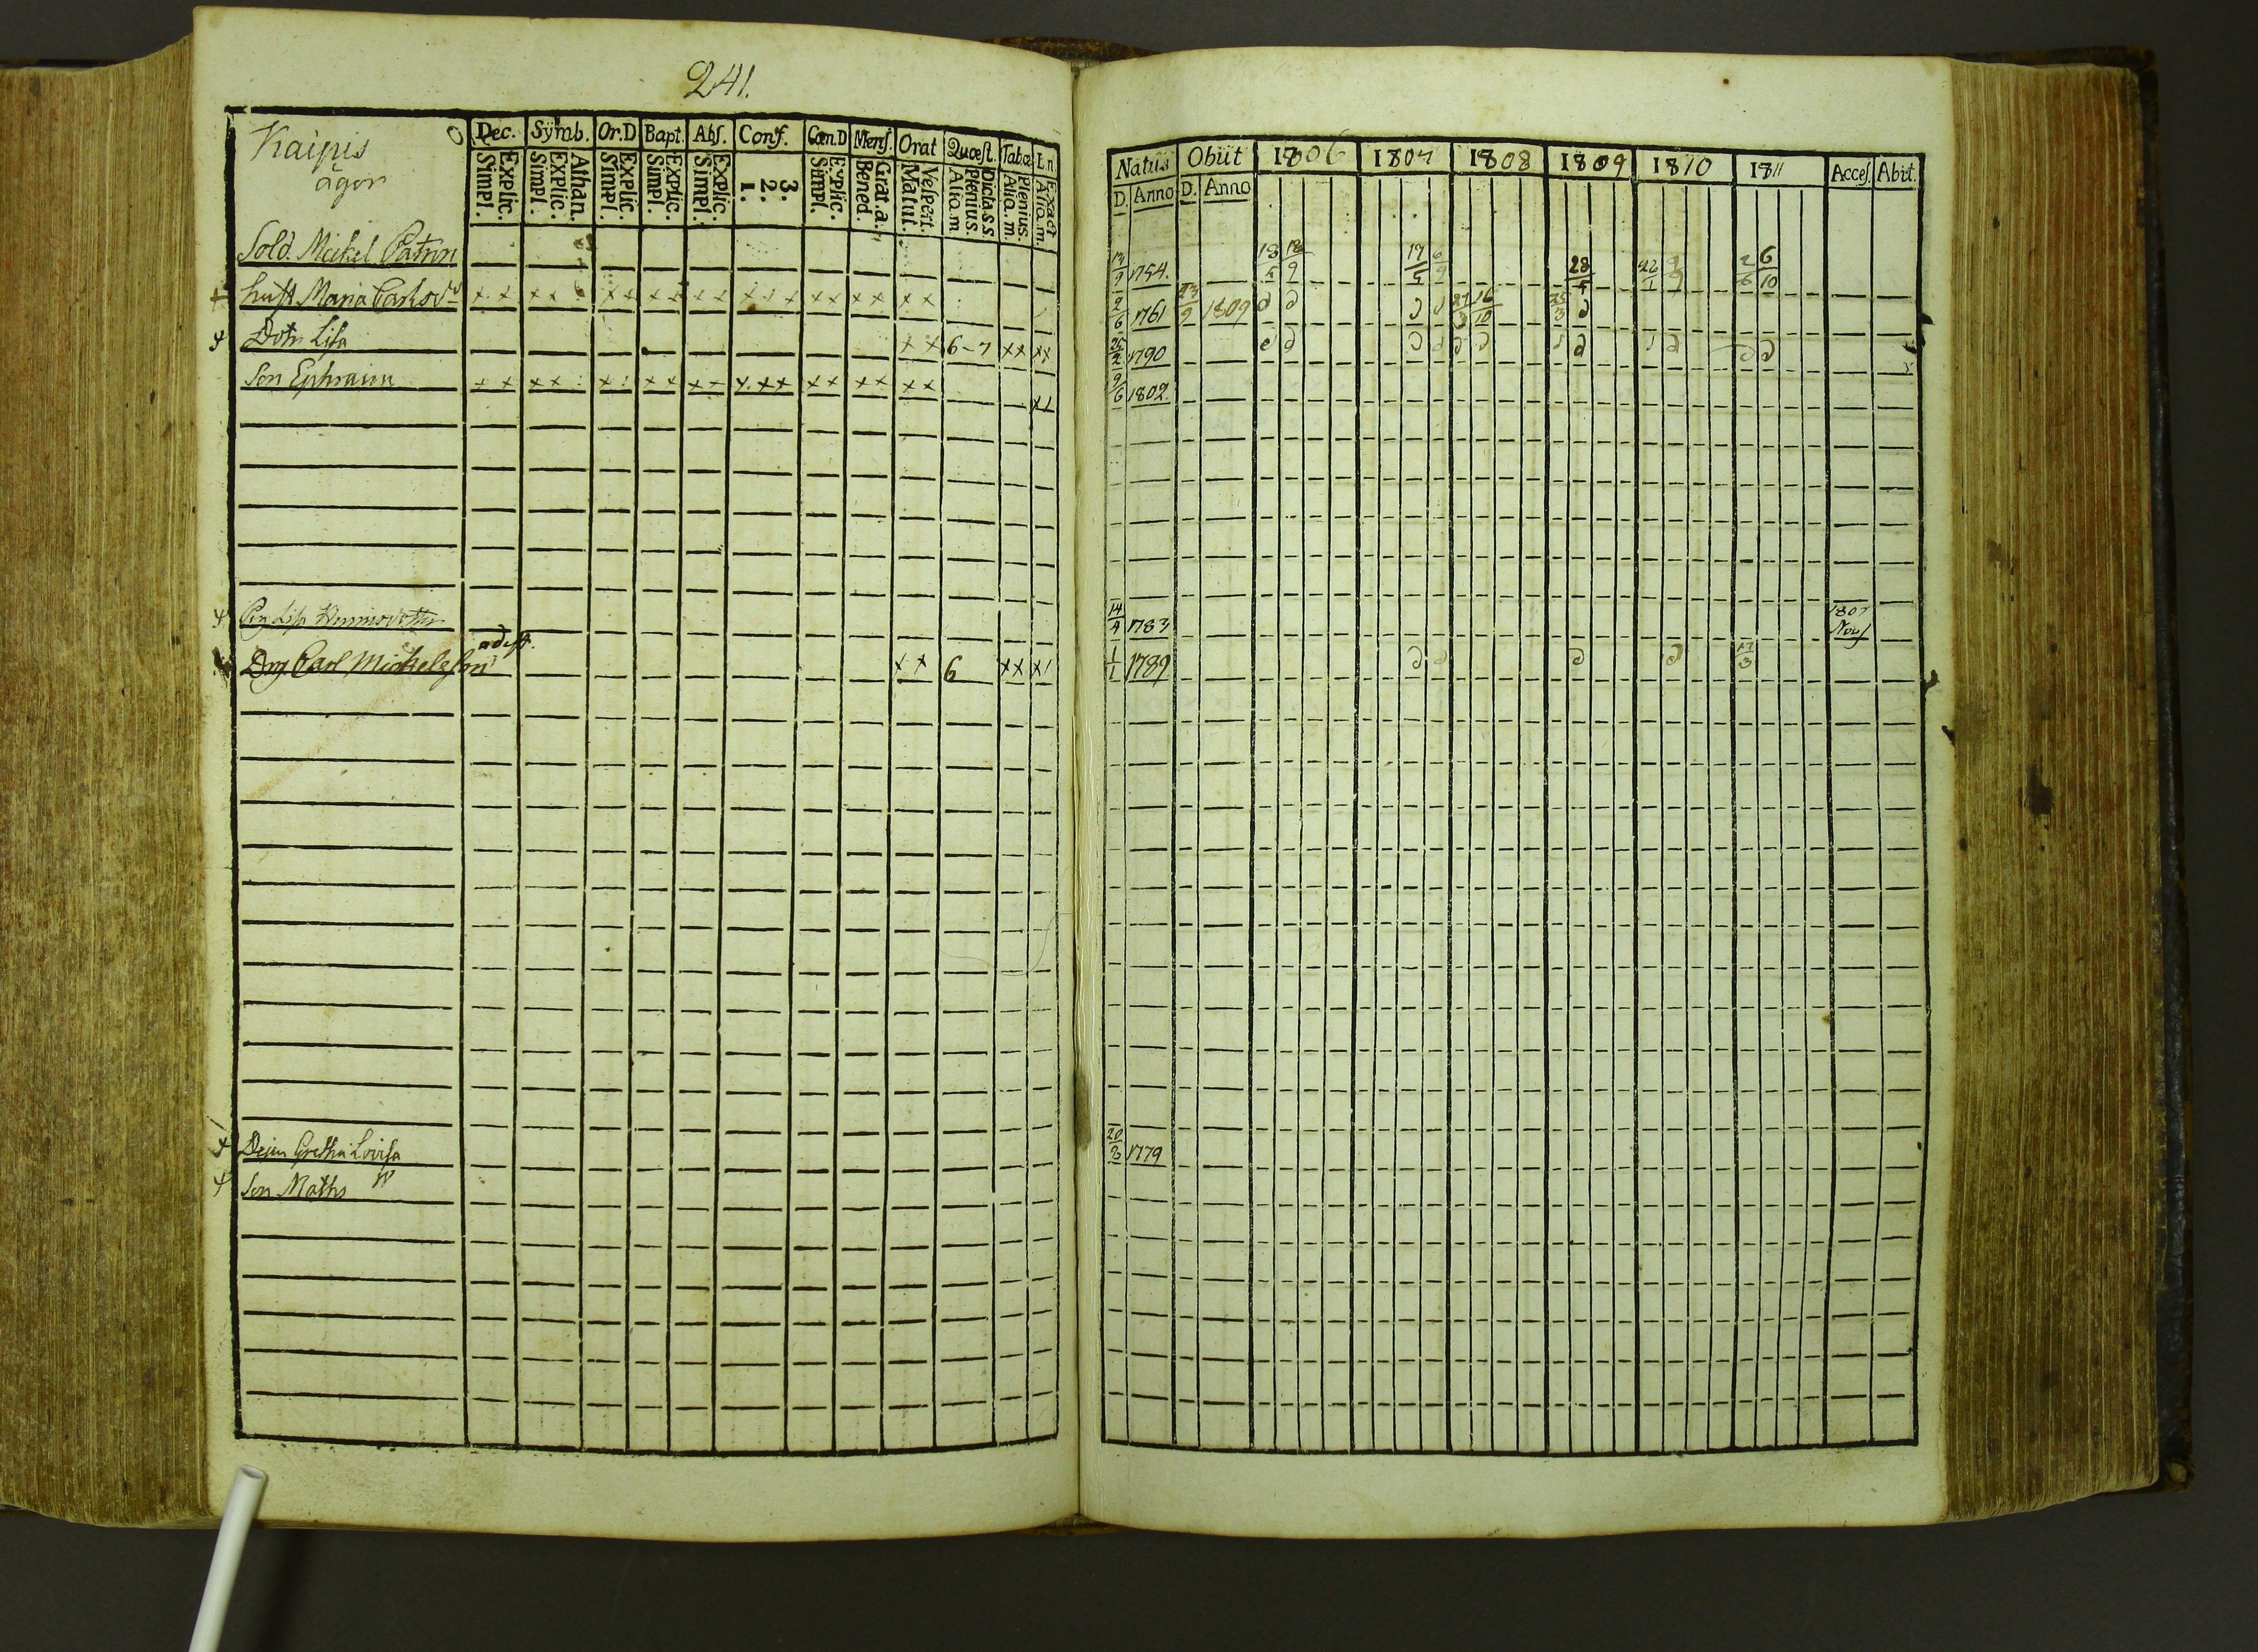 241.
Kaipis Dec. Symb. Or.D Bapt. Abs. Conf. Cœn.D Mens. Orat Quœst. Tabœ Ln.
ägor Simpl. Explic. Simpl. Explic. Athan. Simpl. Explic. Simpl. Explic. Simpl. Explic. 1. 2. 3. Simpl. Explic. Bened. Grat. a. Matut. Vespert. Alio. m plenius. Dicta. s s Alia. m. Plenius. Alia. m. Exact
Sold. Meikel Patron
hust Maria Carlsd:r × × × × × × × × × × × × × × × × × × ×
Dotr Lisa × × 6-7 ×× ××
Son Ephraim × × ×× × × × × × × ×× ×× ×× ××
Pig Lisa
Drg. Carl Mickelsson adest. × × 6 ××
Dejen Gretha Lovisa
Son Maths
Natus Obiit 1806 1807 1808 1809 1810 1811 Acces. Abit.
D. Anno D. Anno
1754. 18/5 18/9 17/5 6/9 28/4 6/10
2/6 1761 23/9 1809 16/10
25/2 1790
9/6 1802.
14/4 1783 1807 Nov
1/1 1789 17/3
20/3 1779